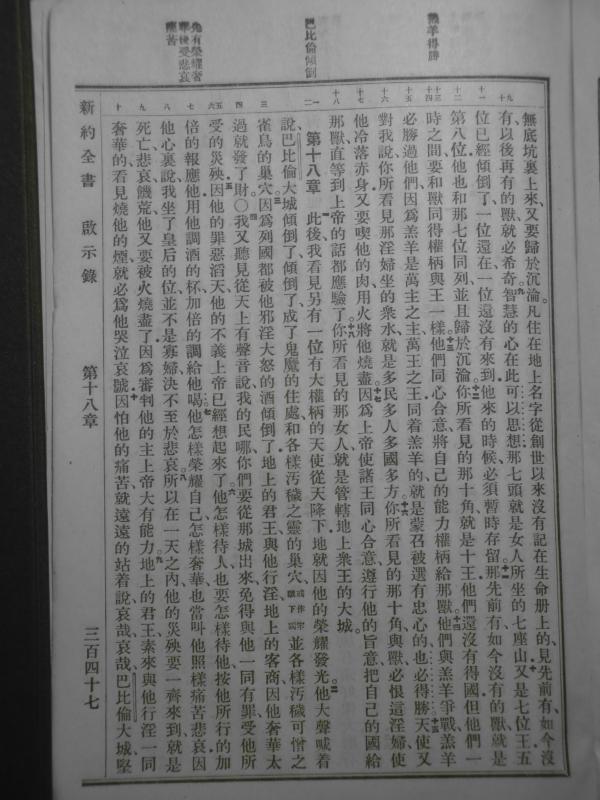 羔羊得勝
巴比倫傾倒
先有榮耀奢
華後受悲哀
痛苦
無底坑裏上來、又要歸於沉淪、凡住在地上名字從創世以來沒有記在生命册上的、見先前有、如今沒
有、以後再有的獸、就必希奇、九智慧的心在此可以思想、那七頭就是女人所坐的七座山、十又是七位王、五
位已經傾倒了、一位還在、一位還沒有來到、他來的時候、必須暫時存留、十一那先前有、如今沒有的獸、就是
第八位、他也和那七位同列、並且歸於沉淪、十二你所看見的那十角、就是十王、他們還沒有得國、但他們一
時之間、要和獸同得權柄與王一樣、十三他們同心合意、將自己的能力權柄給那獸、十四他們與羔羊爭戰、羔羊
必勝過他們、因爲羔羊是萬主之主、萬王之王、同着羔羊的、就是蒙召被選有忠心的、也必得勝、十五天使又
對我說、你所看見那淫婦坐的衆水、就是多民多人多國多方、十六你所看見的那十角、與獸、必恨這淫婦、使
他冷落赤身、又要喫他的肉、用火將他燒盡、十七因爲上帝使諸王同心合意、遵行他的旨意、把自己的國給
那獸、直等到上帝的話都應驗了、十八你所看見的那女人、就是管轄地上衆王的大城。
第十八章 一此後、我看見另有一位有大權柄的天使、從天降下、地就因他的榮耀發光、二他大聲喊着
說、巴比倫大城傾倒了、傾倒了、成了鬼魔的住處、和各樣汚穢之靈的巢穴、或作牢獄下同並各樣汚穢可憎之
雀鳥的巢穴、三因爲列國都被他邪淫大怒的酒傾倒了、地上的君王與他行淫、地上的客商、因他奢華太
過就發了財、○四我又聽見從天上有聲音說、我的民哪、你們要從那城出來、免得與他一同有罪、受他所
受的災殃、五因他的罪惡滔天、他的不義上帝已經想起來了、六他怎樣待人、也要怎樣待他、按他所行的加
倍的報應他、用他調酒的杯、加倍的調給他喝、七他怎樣榮耀自己、怎樣奢華、也當叫他照樣痛苦悲哀、因
他心裏說、我坐了皇后的位、並不是寡婦、決不至於悲哀、八所以在一天之內、他的災殃要一齊來到、就是
死亡、悲哀、饑荒、他又要被火燒盡了、因爲審判他的主上帝大有能力、九地上的君王、素來與他行淫一同
奢華的、看見燒他的煙、就必爲他哭泣哀號、十因怕他的痛苦、就遠遠的站着說、哀哉、哀哉、巴比倫大城、堅
新約全書 啟示錄 第十八章 三百四十七